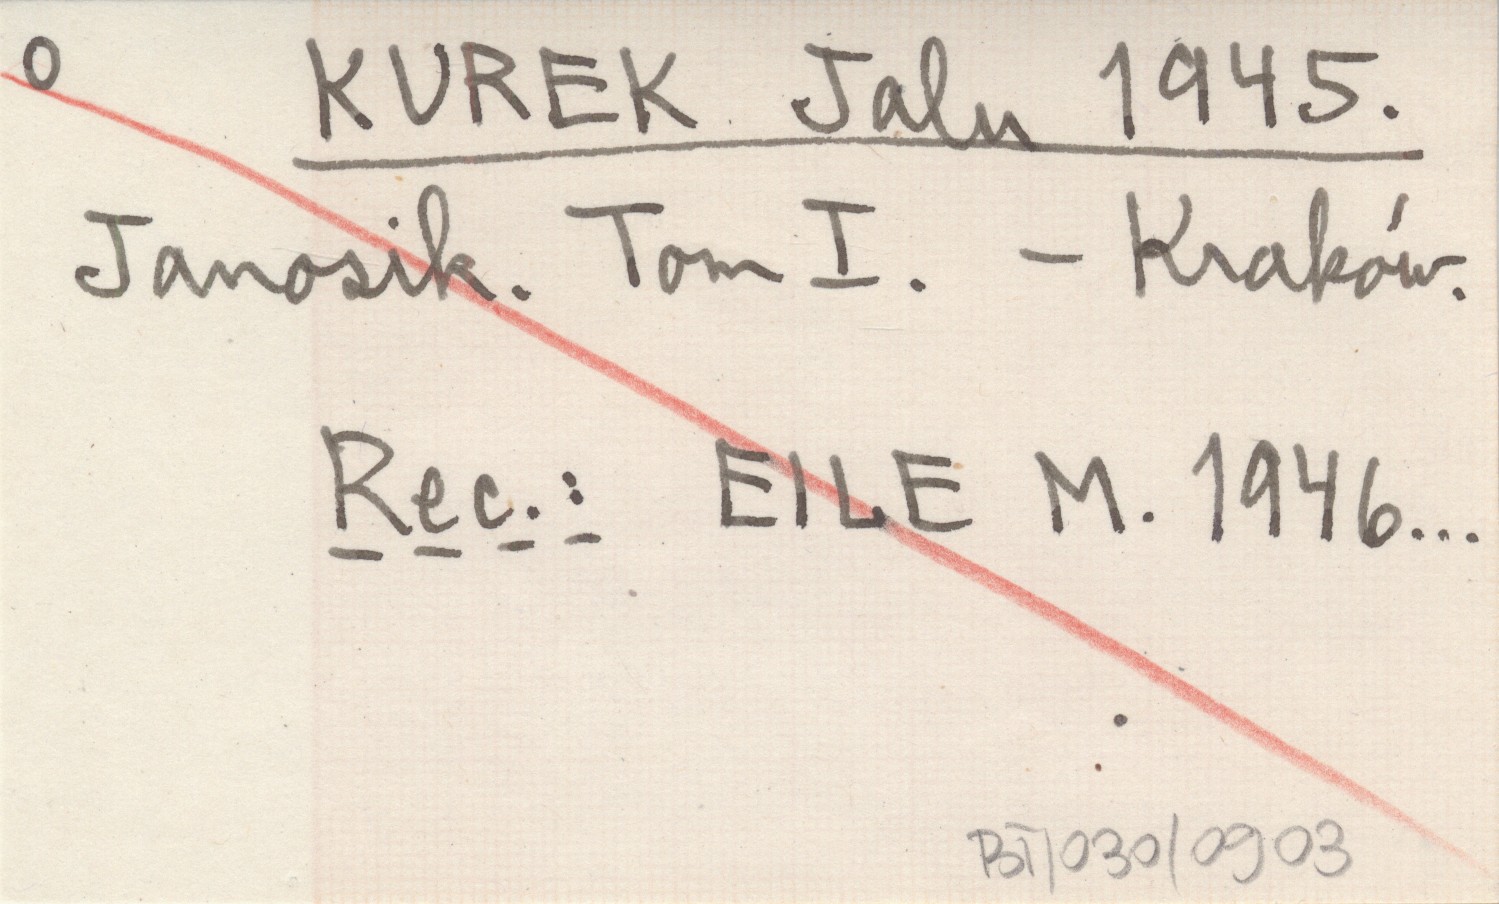 O KUREK Jalu 1945.
Janosik. Tom I. – Kraków.
Rec.: EILE M. 1946...
BT/030/0903